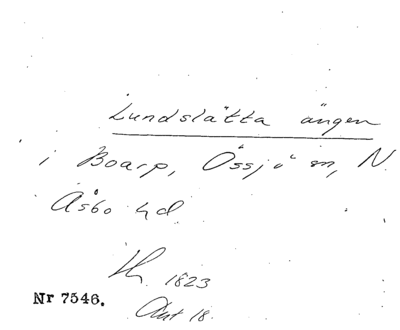 Lundslätta ängen
i Boarp, Össjö sn, N.
Åsbo hd.
1823
Akt 18.
Nr 7546.